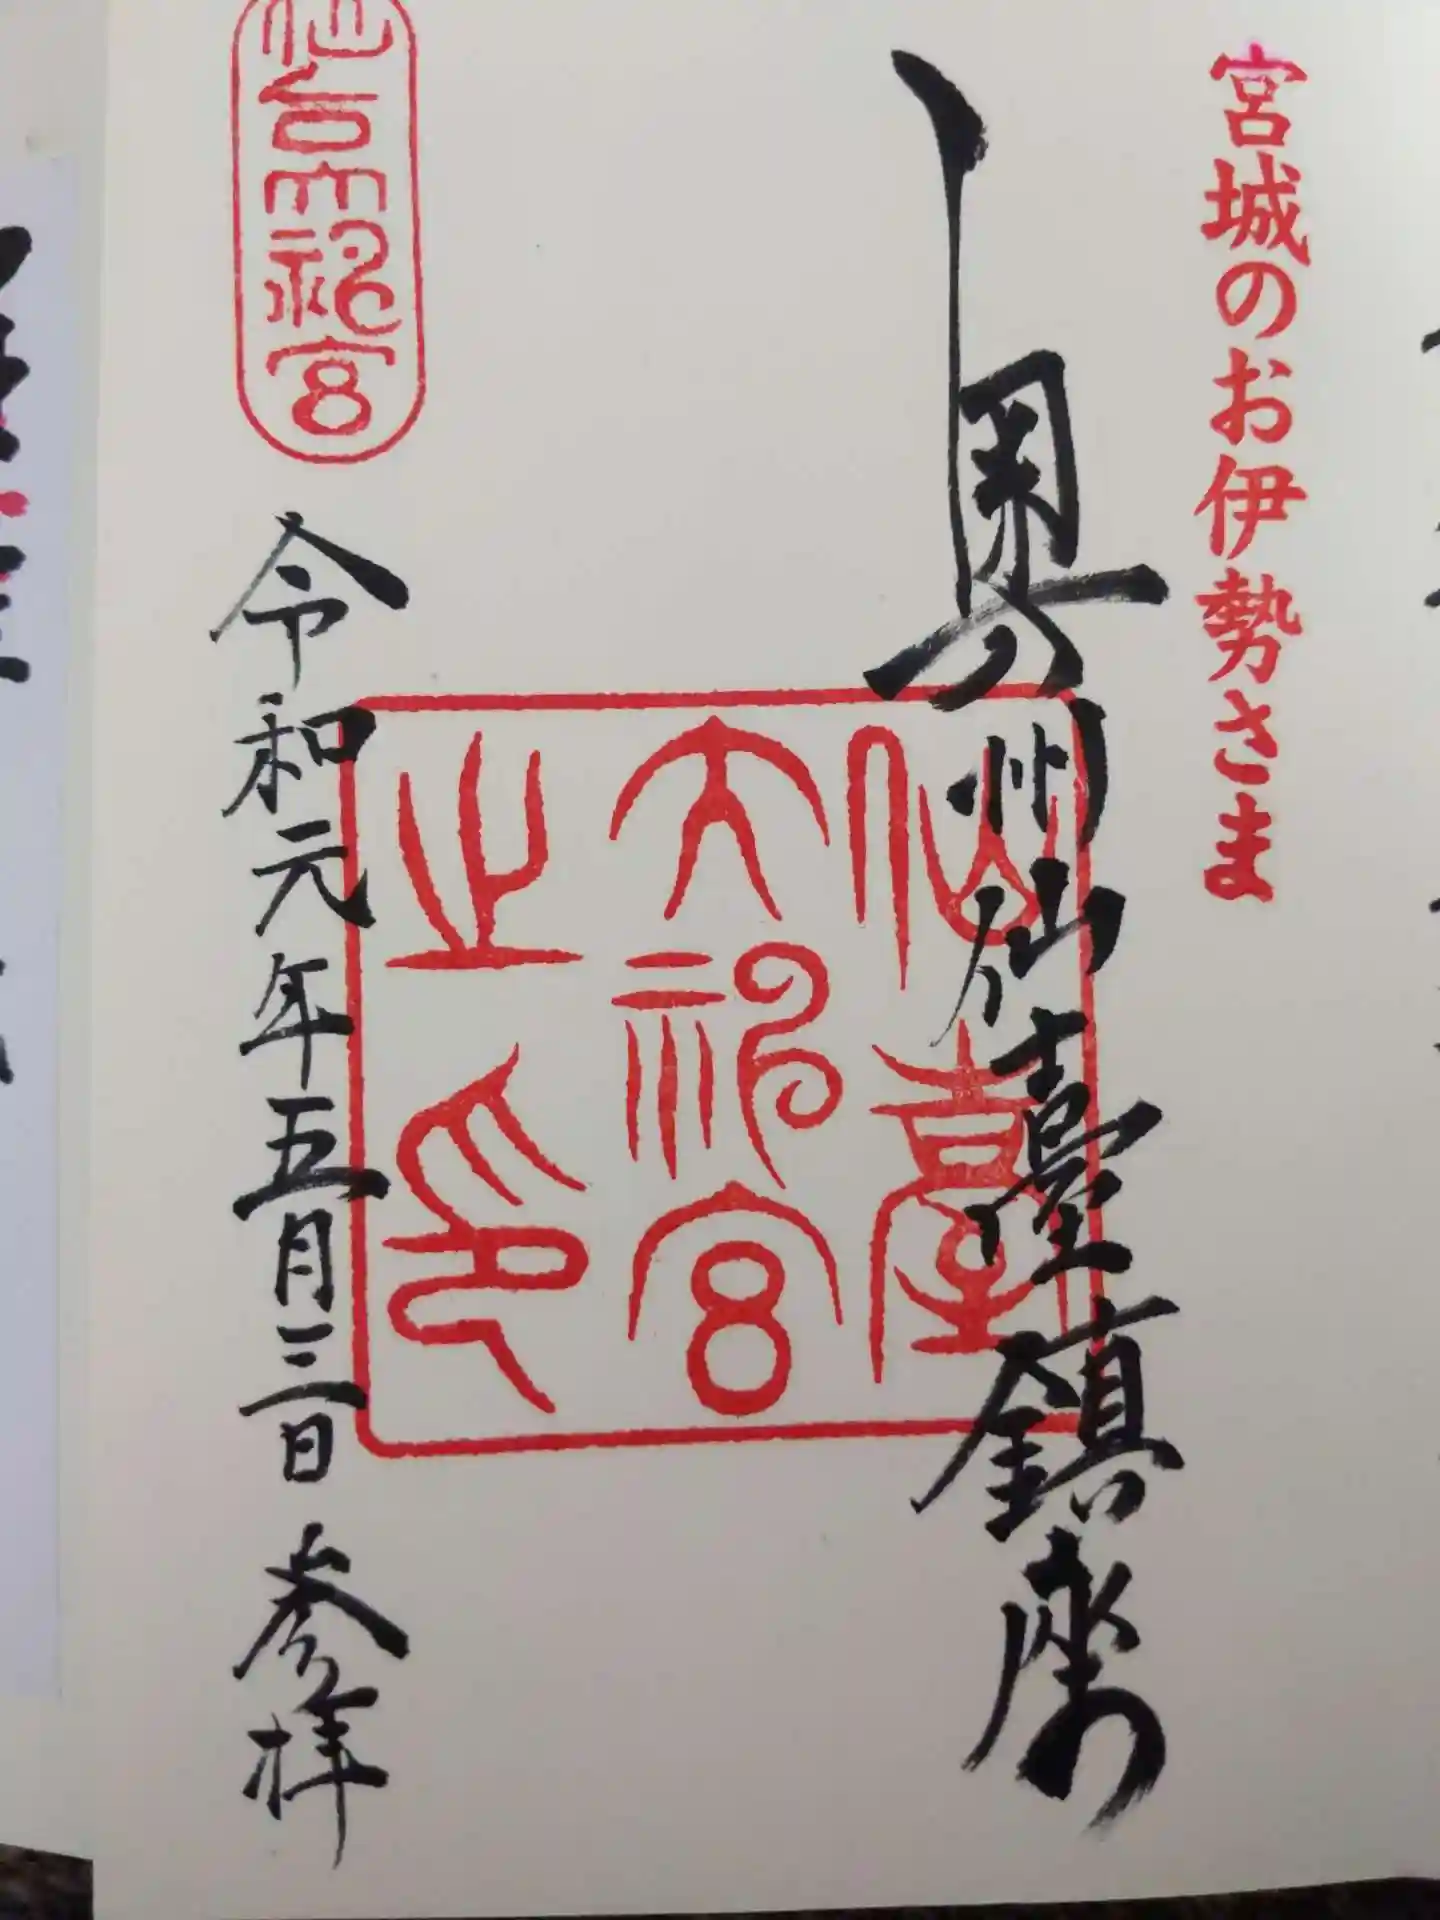 宮城のお伊勢さま
奥州仙臺鎮座
仙臺
大神宮
之印
仙台大神宮
令和元年五月三日 参拝